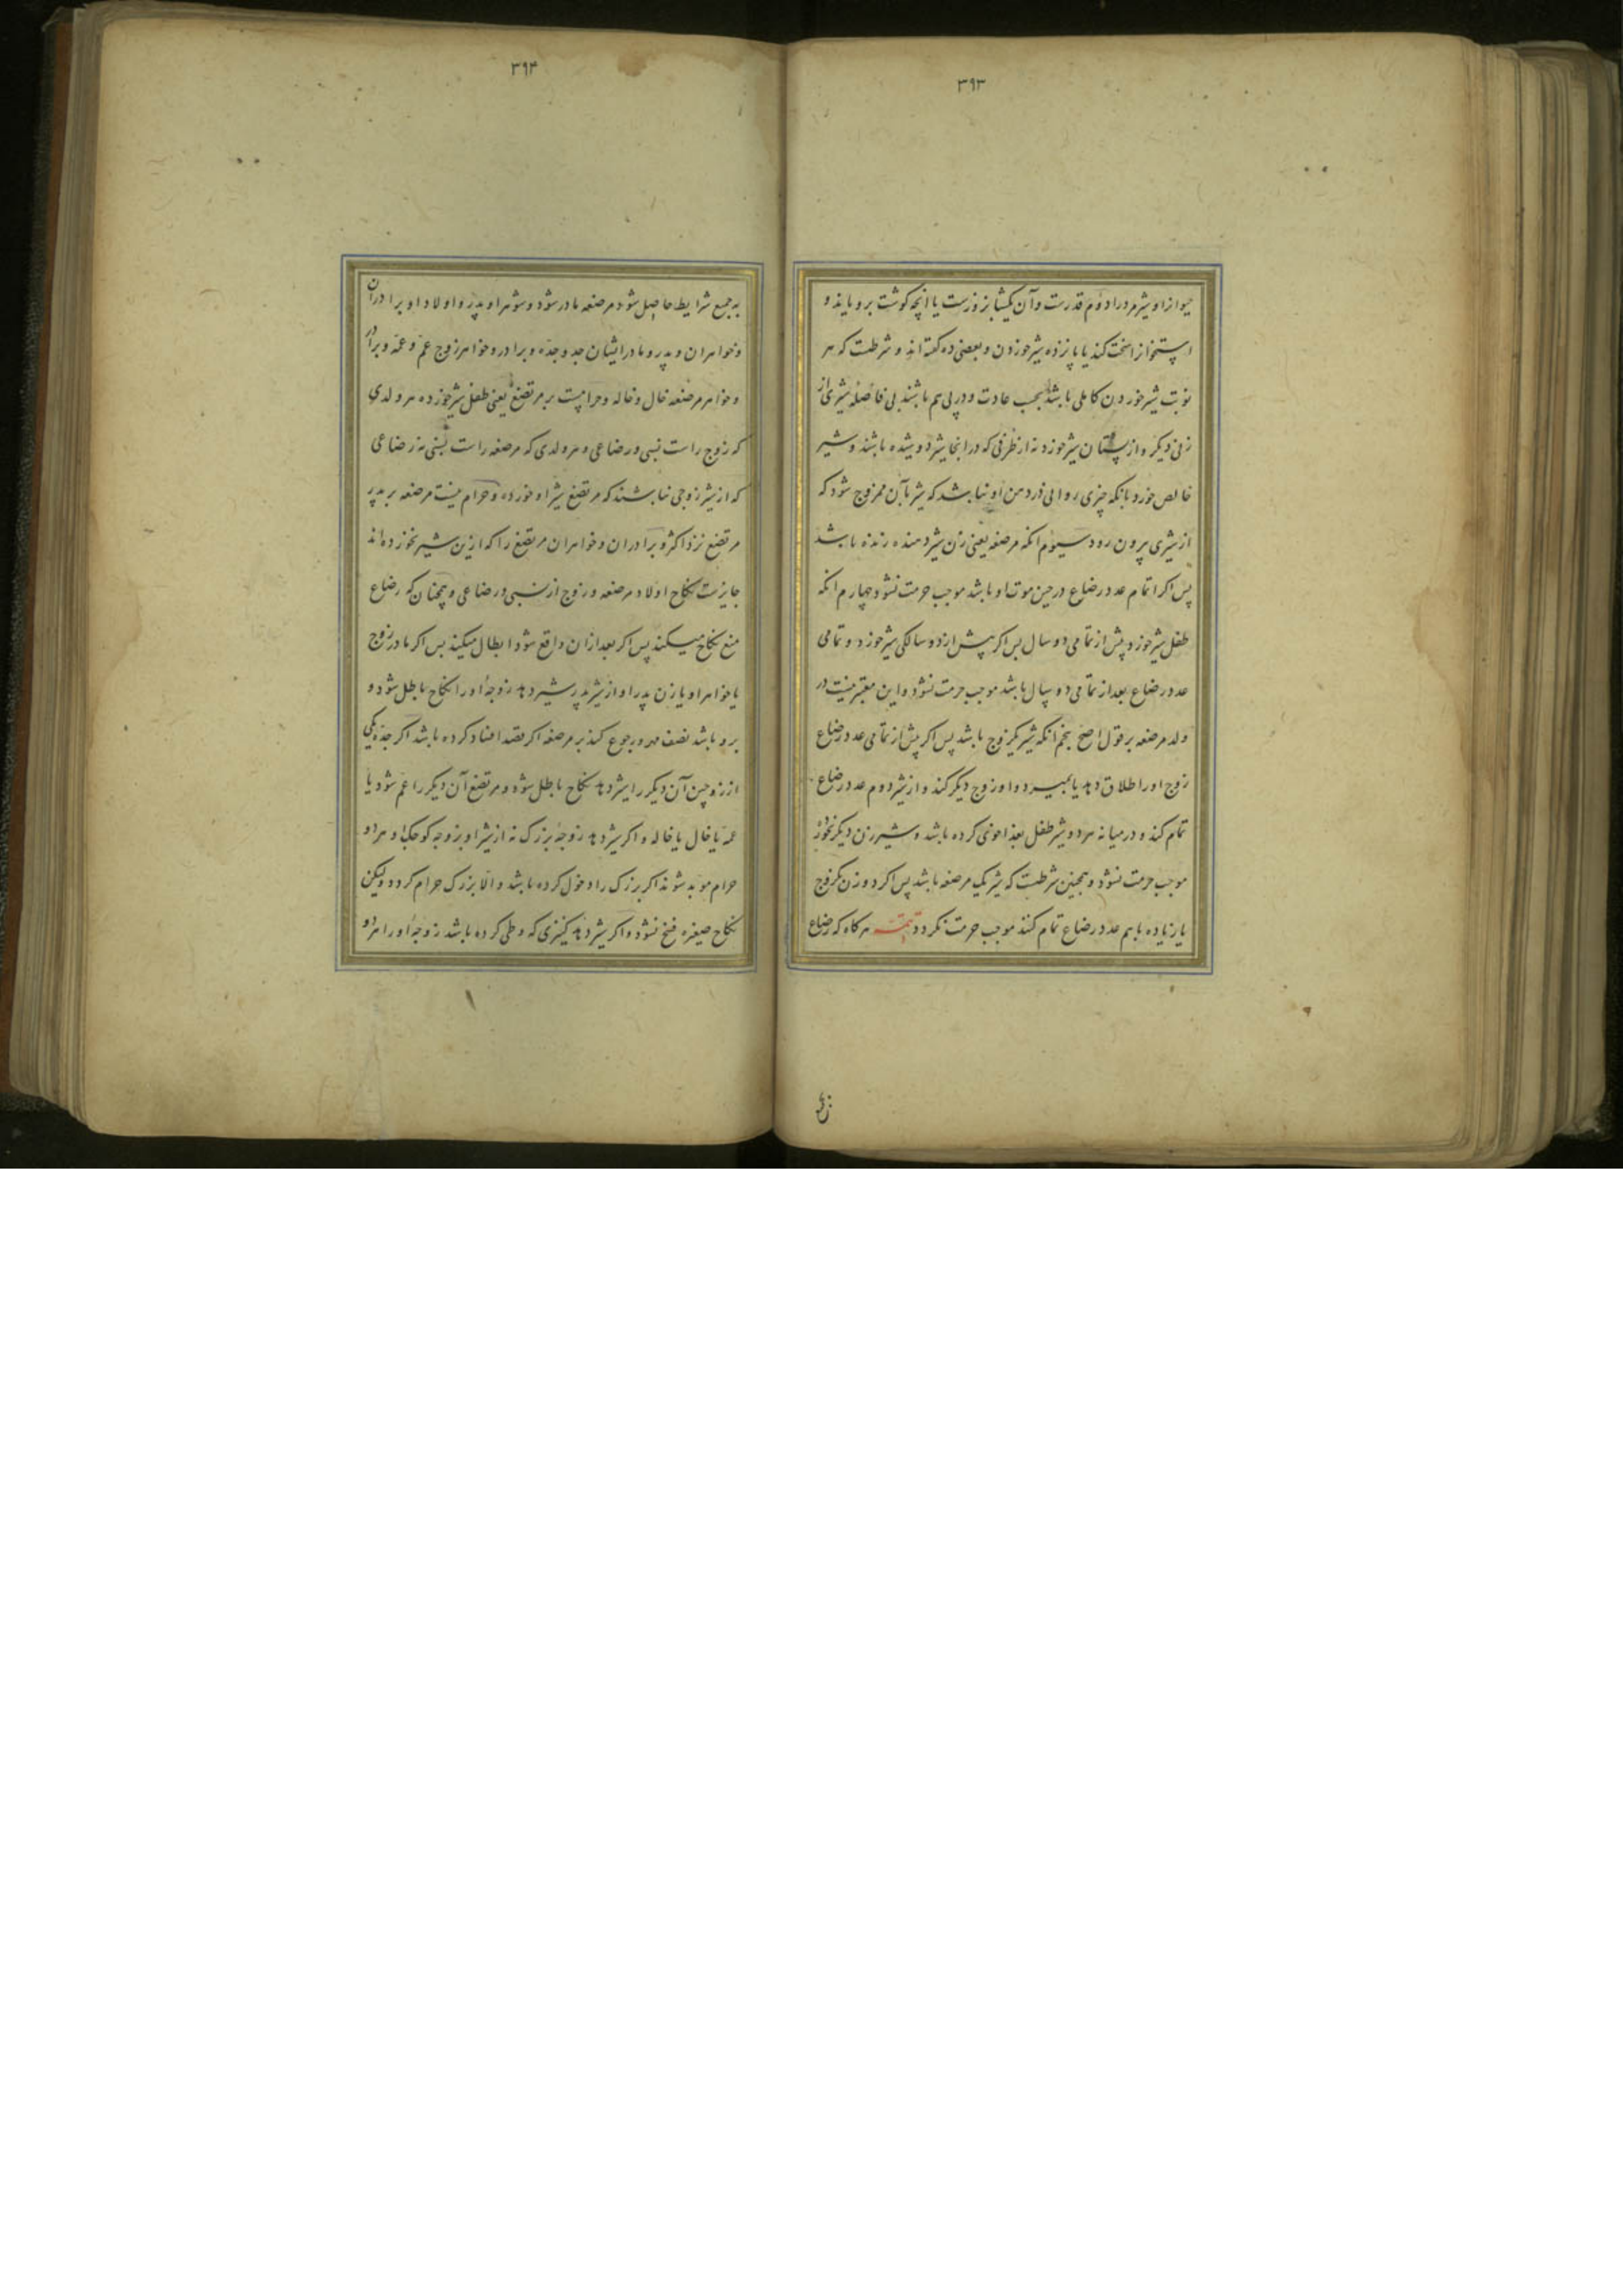 ۳۹۳
حیواز او شیر مرد را دوم قدرست و آن یکشبانروزست یا آنچه کوشت برویاند و
استخوانرا سخت کند یا پانزده شیر خوردن و بعضی ده کفته اند و شرطست که هر
نوبت شیر خوردن کاملی باشد بحسب عادت و در پی هم باشند بی فاصلهٔ شیری از
زنی دیکر و از پستان شیر خورد نه از ظرفی که در آنجا شیر دوشیده باشند و شیر
خالص خورد بانکه چیزی روانی در دهن او نباشد که شیر بآن ممزوج شود که
از شیری بیرون رود سیوم انکه مرضعه یعنی زن شیر دهنده زنده باشد
پس اکر اتمام عدد رضاع در حین موت او باشد موجب حرمت نشود چهارم انکه
طفل شیر خورد پیش از تمامی دو سال پس اکر پیش از دو سالکی شیر خورد و تمامی
عدد رضاع بعد از تمامی دو سال باشد موجب حرمت نشود و این معتبر نیست در
ولد مرضعه بر قول اصح پنجم انکه شیر یکزوج باشد پس اکر پیش از تمامی عدد رضاع
زوج او را طلاق دهد یا بمیرد و او زوج دیکر کند و از شیر دوم عدد رضاع
تمام کند و در میانه هر دو شیر طفل بغذا خوئی کرده باشد و شیر زن دیکر نخورد
موجب حرمت نشود و همچنین شرطست که شیر یک مرضعه باشد پس اکر دو زن یکزوج
یا زیاده با هم عدد رضاع تمام کنند موجب حرمت نکردد تتمه هرکاه که رضاع
۳۹۴
به جمیع شرایط حاصل شود مرضعه مادر شود و شوهر او پدر و اولاد او برادران
و خواهران و پدر و مادر ایشان جد و جده و برادر و خواهر زوج عم و عمه و برادر
و خواهر مرضعه خال و خاله و حرامست بر مرتضع یعنی طفل شیر خورده هر ولدی
که زوج راست نسبی و رضاعی و هر ولدی که مرضعه راست نسبی نه رضاعی
که از شیر زوجی نباشند که مرتضع شیر او خورده و حرام نیست مرضعه بر پدر
مرتضع نزد اکثر و برادران و خواهران مرتضع را که ازین شیر نخورده اند
جایزست نکاح اولاد مرضعه و زوج از نسبی و رضاعی و همچنان که رضاع
منع نکاح میکند پس اکر بعد از ان واقع شود ابطال میکند پس اکر مادر زوج
یا خواهر او یا زن پدر او از شیر پدر شیر دهد زوجهٔ او را نکاح باطل شود و
برو باشد نصف مهر و رجوع کند بر مرضعه اکر قصد افساد کرده باشد اکر جدهٔ یکی
از زوجین آن دیکر را شیر دهد نکاح باطل شود و مرتضع آن دیکر را عم شود یا
عمه یا خال یا خاله و اکر شیر دهد زوجهٔ بزرک نه از شیر او بزوجه کوچک او هر دو
حرام موبد شوند اکر بزرک را دخول کرده باشد و الا بزرک حرام کردد و لیکن
نکاح صغیره فسخ نشود و اکر شیر دهد کنیزی که وطی کرده باشد زوجهٔ او را هر دو